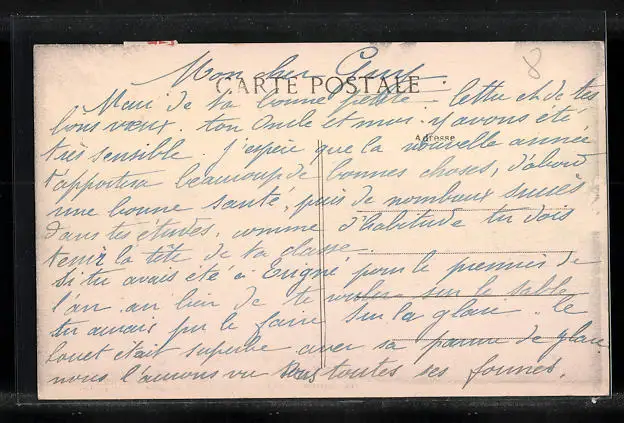 8
Mon cher Guy.
CARTE POSTALE
Merci de ta bonne petite lettre et de tes
Adresse
bons vœux. ton Oncle et moi y avons été
très sensible j'espère que la nouvelle année
t'apportera beaucoup de bonnes choses, d'abord
une bonne santé, puis de nombreux succès
dans tes études, comme d'habitude tu dois
tenir la tête de ta classe.
si tu avais été à Erigné, pour le premier de
l'an au lieu de te rouler sur le sable
tu aurais pu le faire sur la glace. le
louet était superbe avec sa parure de glace
nous l'avons vu sous toutes ses formes.